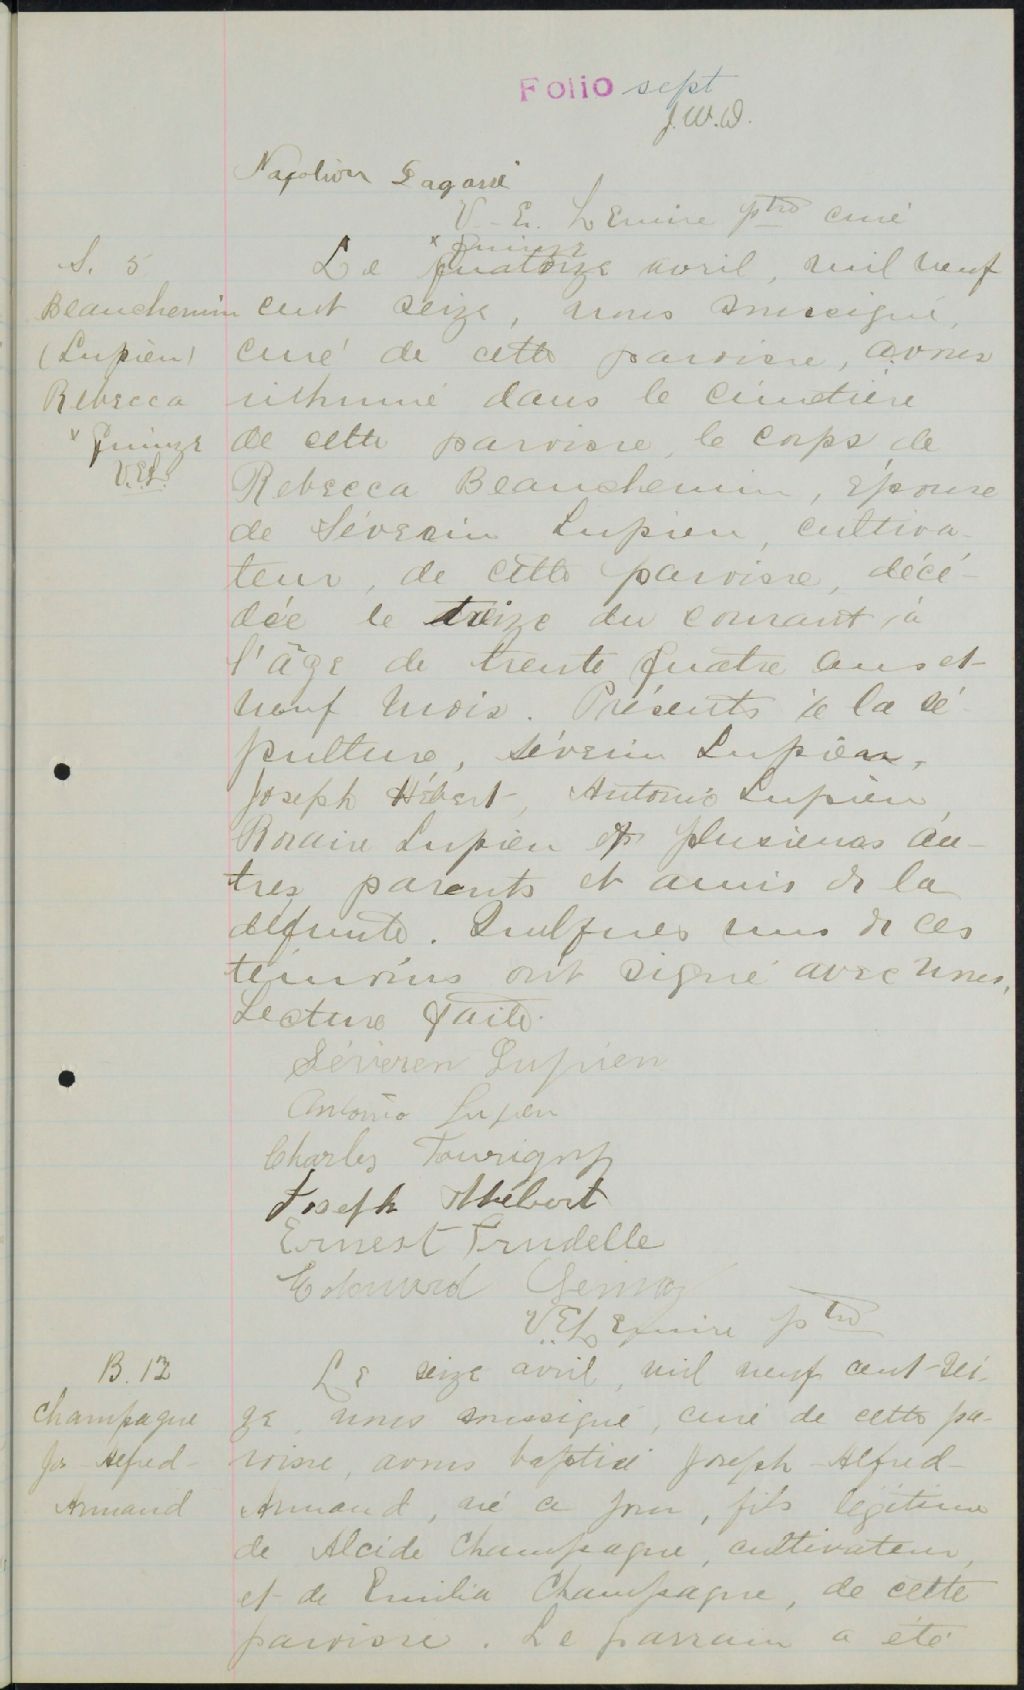 Folio sept
J.W.D.
Napoléon Lagassé
V.-E. Lemire ptre curé
x quinze
S. 5
Beauchemin
(Lupien)
Rebecca
x quinze
V.E.L.
Le quatorze avril, mil neuf
cent seize, nous soussigné,
curé de cette paroisse, avons
inhumé dans le cimetière
de cette paroisse, le corps de
Rebecca Beauchemin, épouse
de Séverin Lupien, cultiva-
teur, de cette paroisse, décé-
dée le treize du courant, à
l'âge de trente quatre ans et
neuf mois. Présents à la sé-
pulture, Séverin Lupien,
Joseph Hébert, Antonio Lupien,
Rosaire Lupien et plusieurs au-
tres parents et amis de la
défunte. Quelques uns de ces
témoins ont signé avec nous.
Lecture faite.
Séveren Lupien
Antonio Lupien
Charles Tourigny
Joseph Hébert
Ernest Trudelle
Edouard
V.E. Lemire ptre
B. 12
Champagne
Jos-Alfred-
Armand
Le seize avril, mil neuf cent-sei-
ze, nous soussigné, curé de cette pa-
roisse, avons baptisé Joseph-Alfred-
Armand, né ce jour, fils légitime
de Alcide Champagne, cultivateur,
et de Emilia Champagne, de cette
paroisse. Le parrain a été